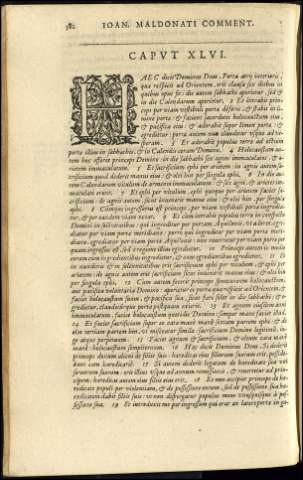 382 IOAN. MALDONATI COMMENT.
CAPVT XLVI.
HAEC dicit Dominus Deus, Porta atrij interioris,
quae respicit ad Orientem, erit clausa sex diebus in
quibus opus fit: die autem sabbathi aperietur, sed &
in die Calendarum aperietur. 2 Et intrabit prin-
ceps per viam vestibuli portae deforis, & stabit in li-
mine portae: & facient sacerdotes holocaustum eius,
& pacifica eius: & adorabit super limen portae: &
egredietur: porta autem non claudetur usque ad ve-
speram. 3 Et adorabit populus terrae ad ostium
portae illius in sabbathis, & in Calendis coram Domino. 4 Holocaustum au-
tem hoc offeret princeps Domino: in die sabbathi sex agnos immaculatos, & a-
rietem immaculatum. 5 Et sacrificium ephi per arietem: in agnis autem sa-
crificium quod dederit manus eius: & olei hin per singula ephi. 6 In die au-
tem Calendarum vitulum de armento immaculatum: & sex agni, & arietes im-
maculati erunt. 7 Et ephi per vitulum, ephi quoque per arietem faciet sa-
crificium: de agnis autem, sicut invenerit manus eius: & olei hin, per singula
ephi. 8 Cumque ingressurus est princeps: per viam vestibuli portae ingredia-
tur, & per eandem viam exeat. 9 Et cum intrabit populus terrae in conspectu
Domini in solennitatibus: qui ingreditur per portam Aquilonis, ut adoret, egre-
diatur per viam portae meridianae: porro qui ingreditur per viam portae meri-
dianae, egrediatur per viam portae Aquilonis: non revertetur per viam portae per
quam ingressus est, sed è regione illius egredietur. 10 Princeps autem in medio
eorum cum ingredientibus ingredietur, & cum egredientibus egredietur. 11 Et
in nundinis & in solennitatibus erit sacrificium ephi per vitulum, & ephi per
arietem: de agnis autem erit sacrificium sicut invenerit manus eius: & olei hin
per singula ephi. 12 Cum autem fecerit princeps spontaneum holocaustum,
aut pacifica voluntaria Domino: aperietur ei porta quae respicit ad Orientem, &
faciet holocaustum suum, & pacifica sua, sicut fieri solet in die sabbathi: & e-
gredietur, claudeturque porta postquam exierit. 13 Et agnum eiusdem anni
immaculatum, faciet holocaustum quotidie Domino: semper mane faciet illud.
14 Et faciet sacrificium super eo cata mane mane sextam partem ephi: & de
oleo tertiam partem hin, ut misceatur similae: sacrificium Domino legitimum, iu-
ge atque perpetuum. 15 Faciet agnum & sacrificium, & oleum cata mane
mane: holocaustum sempiternum. 16 Haec dicit Dominus Deus, Si dederit
princeps donum alicui de filiis suis: haereditas eius filiorum suorum erit, posside-
bunt eam haereditariè. 17 Si autem dederit legatum de haereditate sua uni
servorum suorum: erit illius usque ad annum remissionis, & revertetur ad prin-
cipem: haereditas autem eius filiis eius erit. 18 Et non accipiet princeps de hae-
reditate populi per violentiam, & de possessione eorum: sed de possessione sua hae-
reditatem dabit filiis suis: ut non dispergatur populus meus unusquisque à pos-
sessione sua. 19 Et introduxit me per ingressum qui erat ex latere portae in ga-